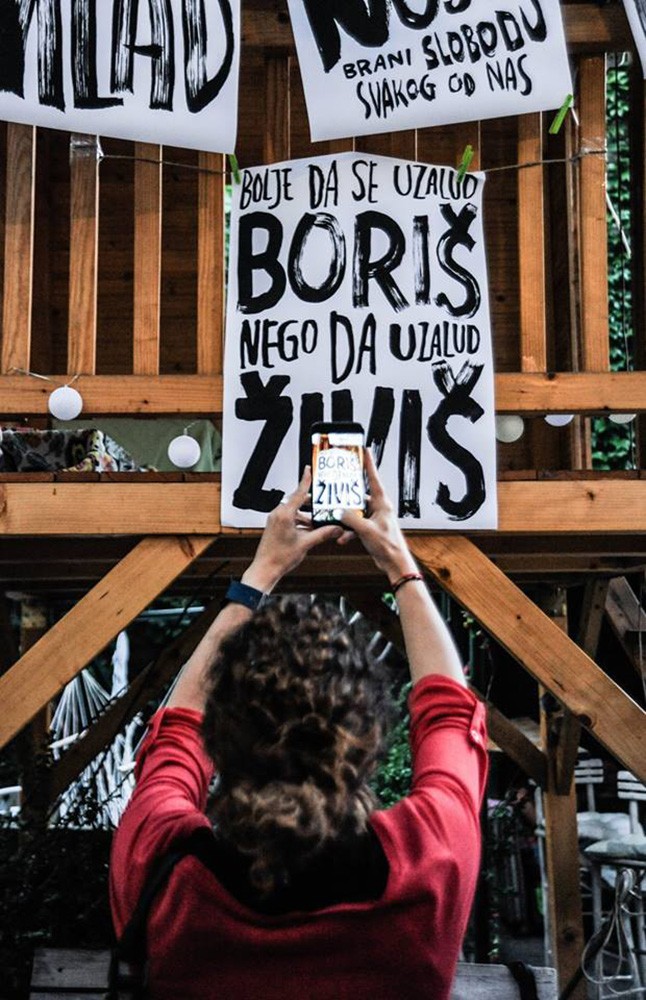 MLAD
BRANI SLOBODU
SVAKOG OD NAS
BOLJE DA SE UZALUD
BORIŠ
NEGO DA UZALUD
ŽIVIŠ
BORIŠ
ŽIVIŠ